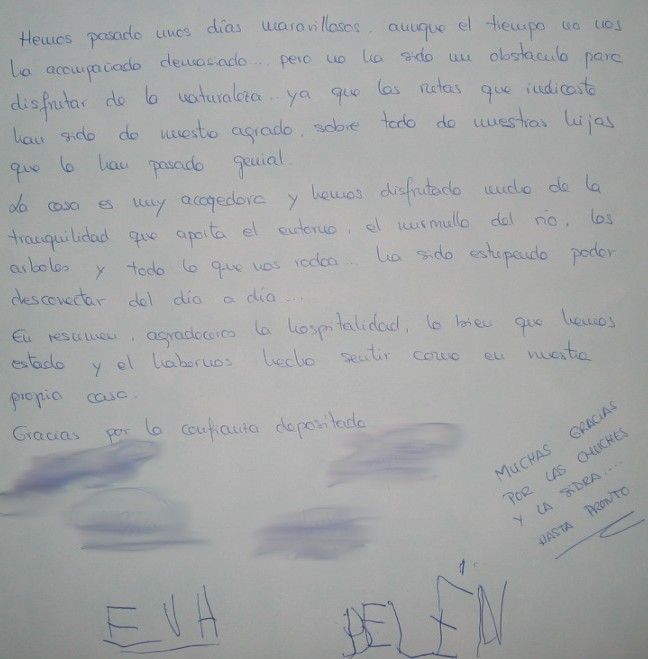 Hemos pasado unos días maravillosos, aunque el tiempo no nos
ha acompañado demasiado... pero no ha sido un obstaculo para
disfrutar de la naturaleza.. ya que las rutas que indicaste
han sido de nuestro agrado, sobre todo de nuestras hijas
que lo han pasado genial.
La casa es muy acogedora y hemos disfrutado mucho de la
tranquilidad que aporta el entorno, el murmullo del río, los
arboles y todo lo que nos rodea... ha sido estupendo poder
desconectar del día a día...
En resumen, agradoceros la hospitalidad, lo bien que hemos
estado y el habernos hecho sentir como en nuestra
propia casa.
Gracias por la confianza depositada
MUCHAS GRACIAS
POR LAS CHUCHES
Y LA SIDRA....
HASTA PRONTO
EVA
BELÉN